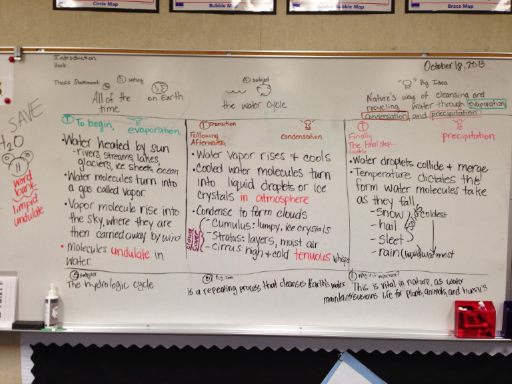 Circle Map
Bubble Map
Bubble Map
Brace Map
Introduction
October 18, 2013
Thesis Statement:
setting
All of the time
on Earth
subject
the water cycle
Big Idea
Nature's way of cleansing and
recycling water through evaporation,
condensation, and precipitation.
SAVE
H2O
word
bank:
limpid
undulate
To begin, evaporation
• Water heated by sun
- rivers, streams, lakes,
glaciers, ice sheets, ocean
• Water molecules turn into
a gas called vapor.
• Vapor molecule rise into
the sky, where they are
then carried away by wind
• molecules undulate in
water
transition
Following
Afterwards, condensation
• Water vapor rises & cools
• Cooled water molecules turn
into liquid droplets or ice
crystals in atmosphere
• Condense to form clouds
Cumulus: lumpy, ice crystals
Stratus: layers, moist air
cirrus: high & cold tenuous
Finally
The final step...
precipitation
• Water droplets collide & merge
• Temperature dictates the
form water molecules take
as they fall,
- Snow coldest
- hail
- Sleet
- rain
subject
The hydrologic cycle
Big Idea
is a repeating process that cleanses Earth's water
This is vital in nature, as water
maintains life for plants, animals, and humans